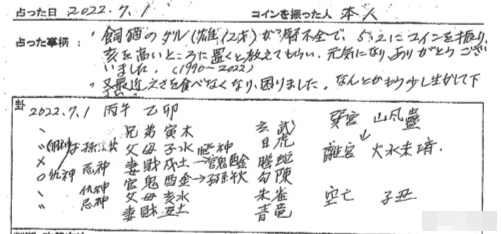 占った日 2022.7.1 コインを振った人 本人
占った事柄:
"飼猫のダル(雄12才)が腎不全で、 コインを振り
亥を高いところに置くと教えてもらい、元気になりありがとうござ
いました。(1990-2022)
又最近えさを食べなくなり、困りました。なんとかもう少し生かして下
卦
2022.7.1 丙午 乙卯
兄弟寅木 玄武 巽宮 山風蠱
父母子水 白虎 ↓
忌神 妻財戌土→官鬼酉金 騰蛇 離宮 火水未済
仇神 官鬼酉金→ 勾陳
忌神 父母亥水 朱雀 空亡 子丑
妻財丑土 青竜